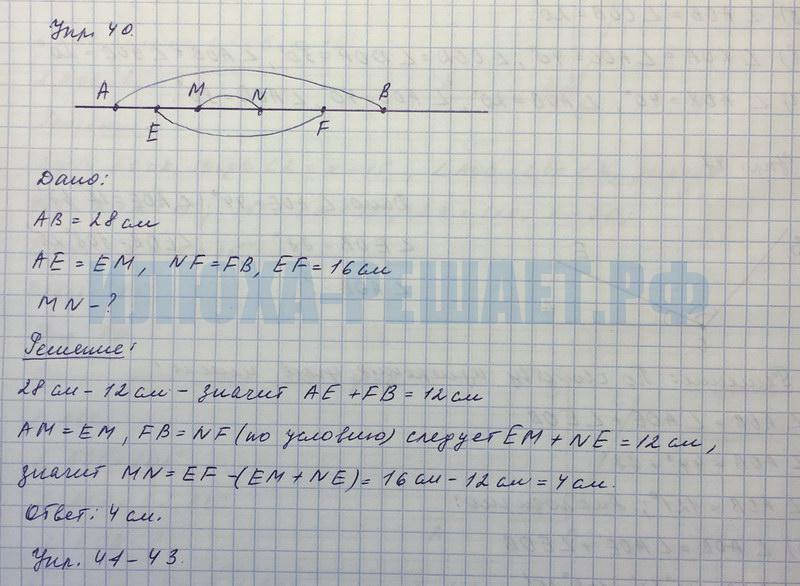 Упр. 40.
A M N B
E F
Дано:
AB = 28 см
AE = EM, NF = FB, EF = 16 см
MN - ?
ИЛЮХА-РЕШАЕТ.РФ
Решение:
28 см - 12 см - значит AE + FB = 12 см
AM = EM, FB = NF (по условию) следует EM + NE = 12 см,
значит MN = EF - (EM + NE) = 16 см - 12 см = 4 см.
Ответ: 4 см.
Упр. 41 - 43.